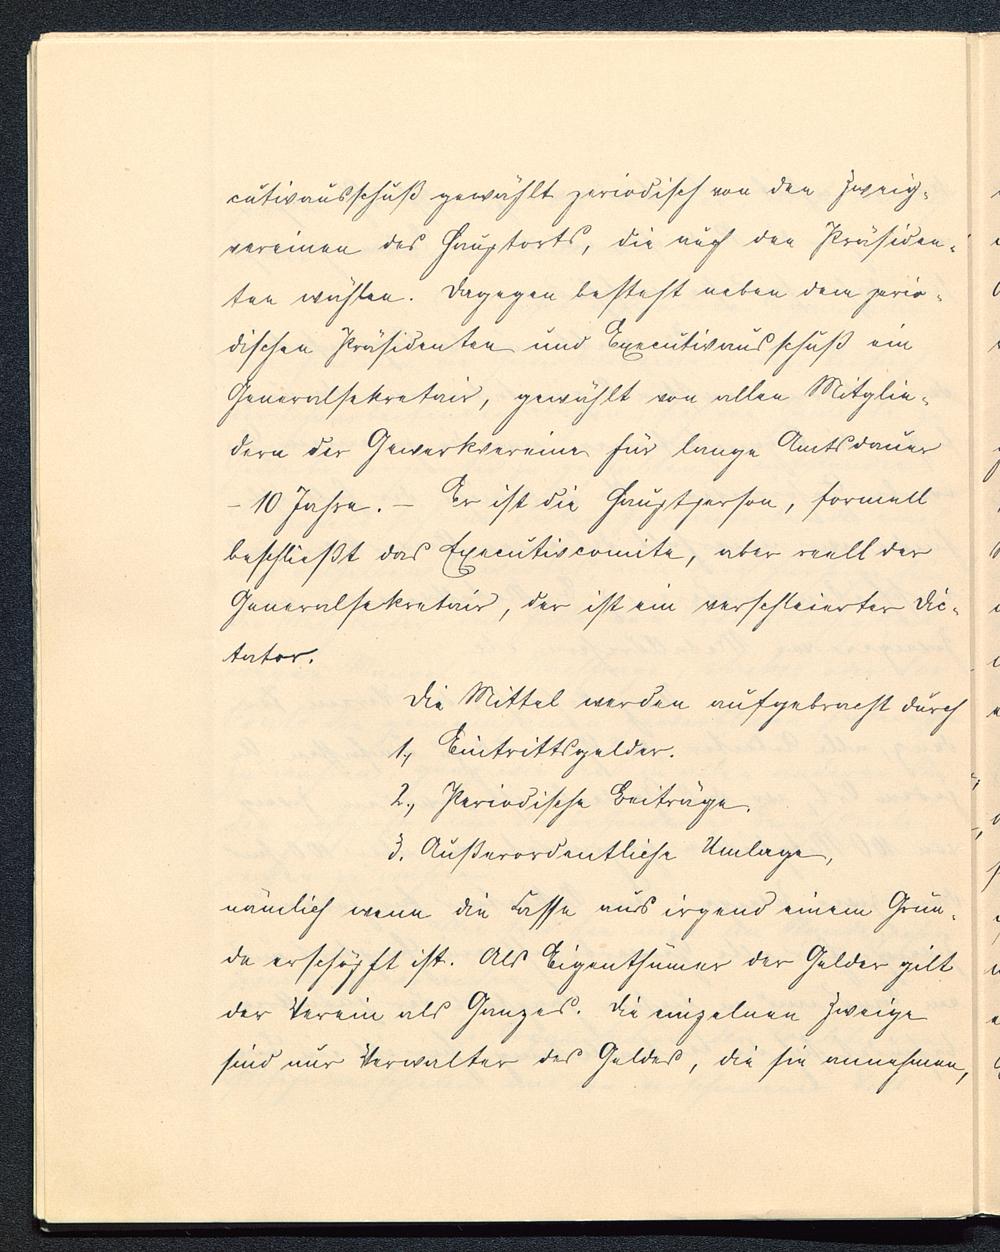 cutivausschuß gewählt periodisch von den Zweig-
vereinen des Hauptorts, die auch den Präsiden-
ten wählen. Dagegen besteht neben dem perio-
dischen Präsidenten und Executivausschuß ein
Generalsekretair, gewählt von allen Mitglie-
dern der Gewerkvereine für lange Amtsdauer
– 10 Jahre. – Er ist die Hauptperson, formell
beschließt das Executivcomite, aber reell der
Generalsekretair, der ist ein verschleierter Dic-
tator.
Die Mittel werden aufgebracht durch
1., Eintrittsgelder.
2., Periodische Beiträge.
3. Außerordentliche Umlage,
nämlich wenn die Casse aus irgend einem Grun-
de erschöpft ist. Als Eigenthümer der Gelder gilt
der Verein als Ganzes. Die einzelnen Zweige
sind nur Verwalter des Geldes, die sie annehmen,